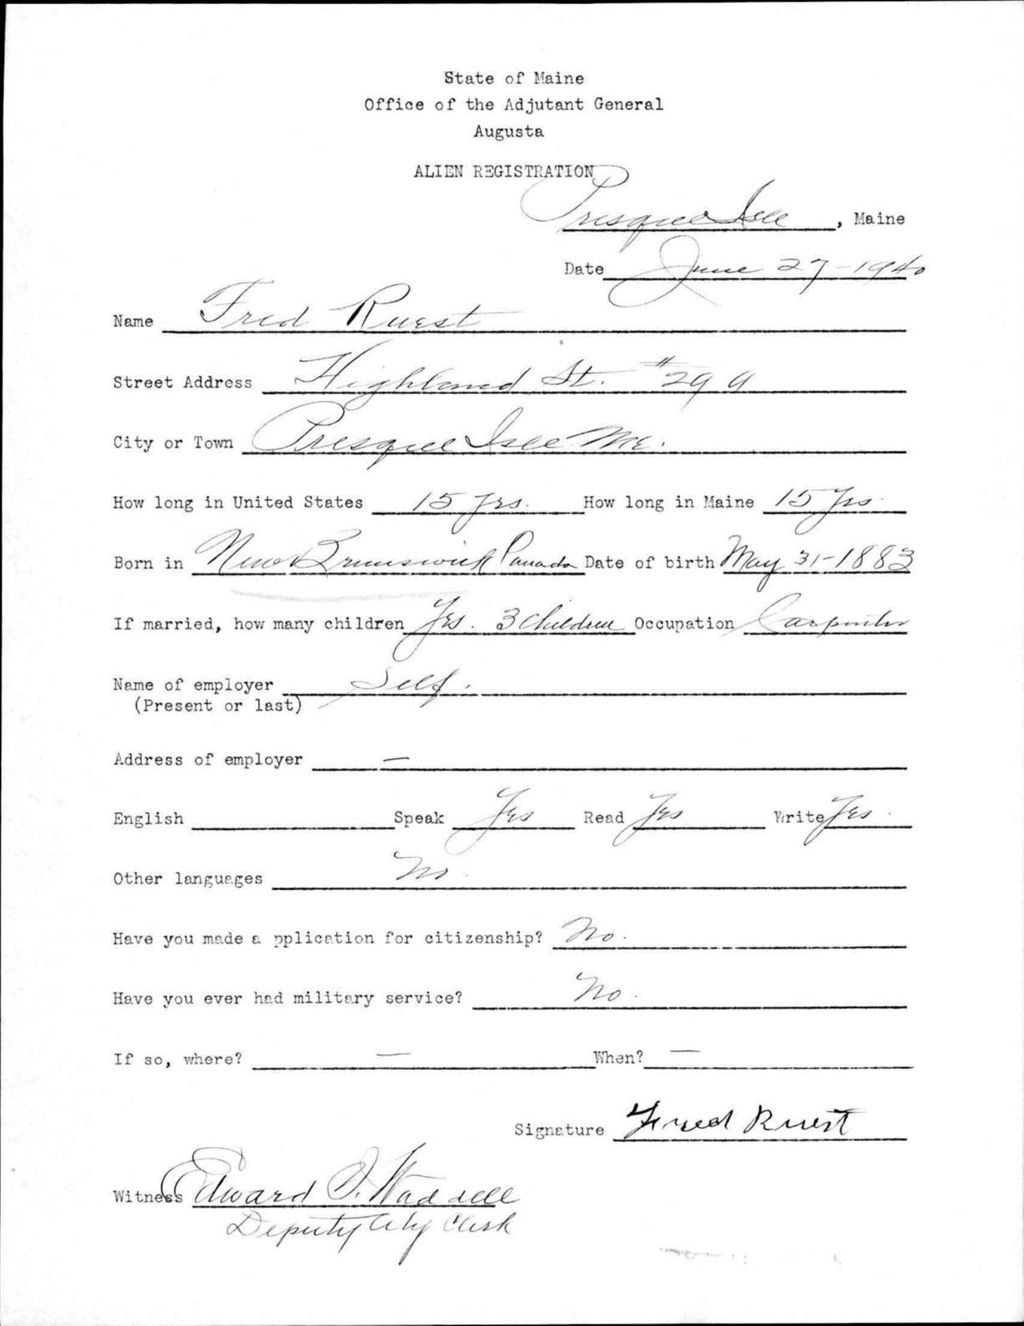 State of Maine
Office of the Adjutant General
Augusta
ALIEN REGISTRATION
Presque Isle, Maine
Date June 27-1940
Name Fred Ruest
Street Address Highland St. #299
City or Town Presque Isle Me.
How long in United States 15 yrs. How long in Maine 15 yrs.
Born in New Brunswick Canada Date of birth May 31-1883
If married, how many children Yes. 3 Children Occupation Carpenter
Name of employer Self.
(Present or last)
Address of employer —
English Speak Yes Read Yes Write Yes.
Other languages No
Have you made a pplication for citizenship? No.
Have you ever had military service? No.
If so, where? — When? —
Signature Freed Ruest
Witness Edward I. Waddell
Deputy City Clerk